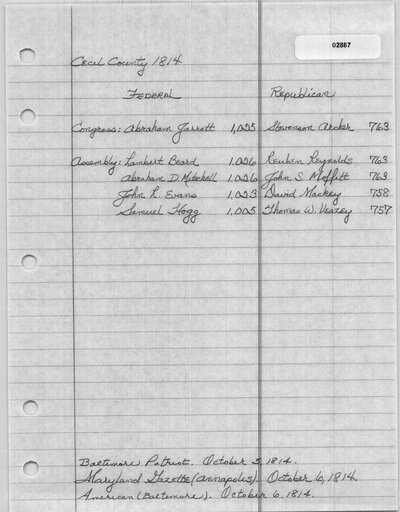 02887
Cecil County 1814
Federal Republican
Congress: Abraham Jarrett 1,025 Stevenson Archer 763
Assembly: Lambert Beard 1,026 Reuben Reynolds 763
Abraham D. Mitchell 1,026 John S. Moffitt 763
John R. Evans 1,023 David Mackey 758
Samuel Hogg 1,005 Thomas W. Veazey 757
Baltimore Patriot. October 5, 1814.
Maryland Gazette (Annapolis). October 6, 1814.
American (Baltimore). October 6, 1814.